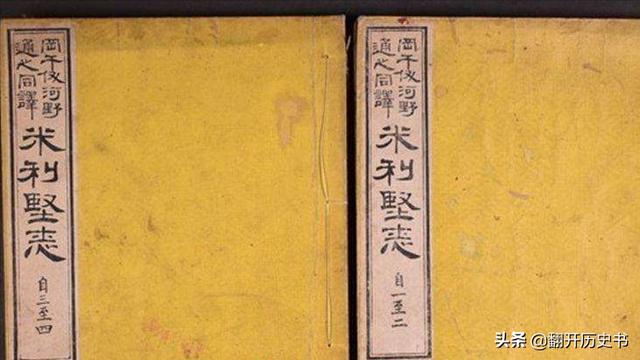 岡千仭河野
通之同譯
米利堅志
自一至二
岡千仭河野
通之同譯
米利堅志
自三至四
头条 @翻开历史书